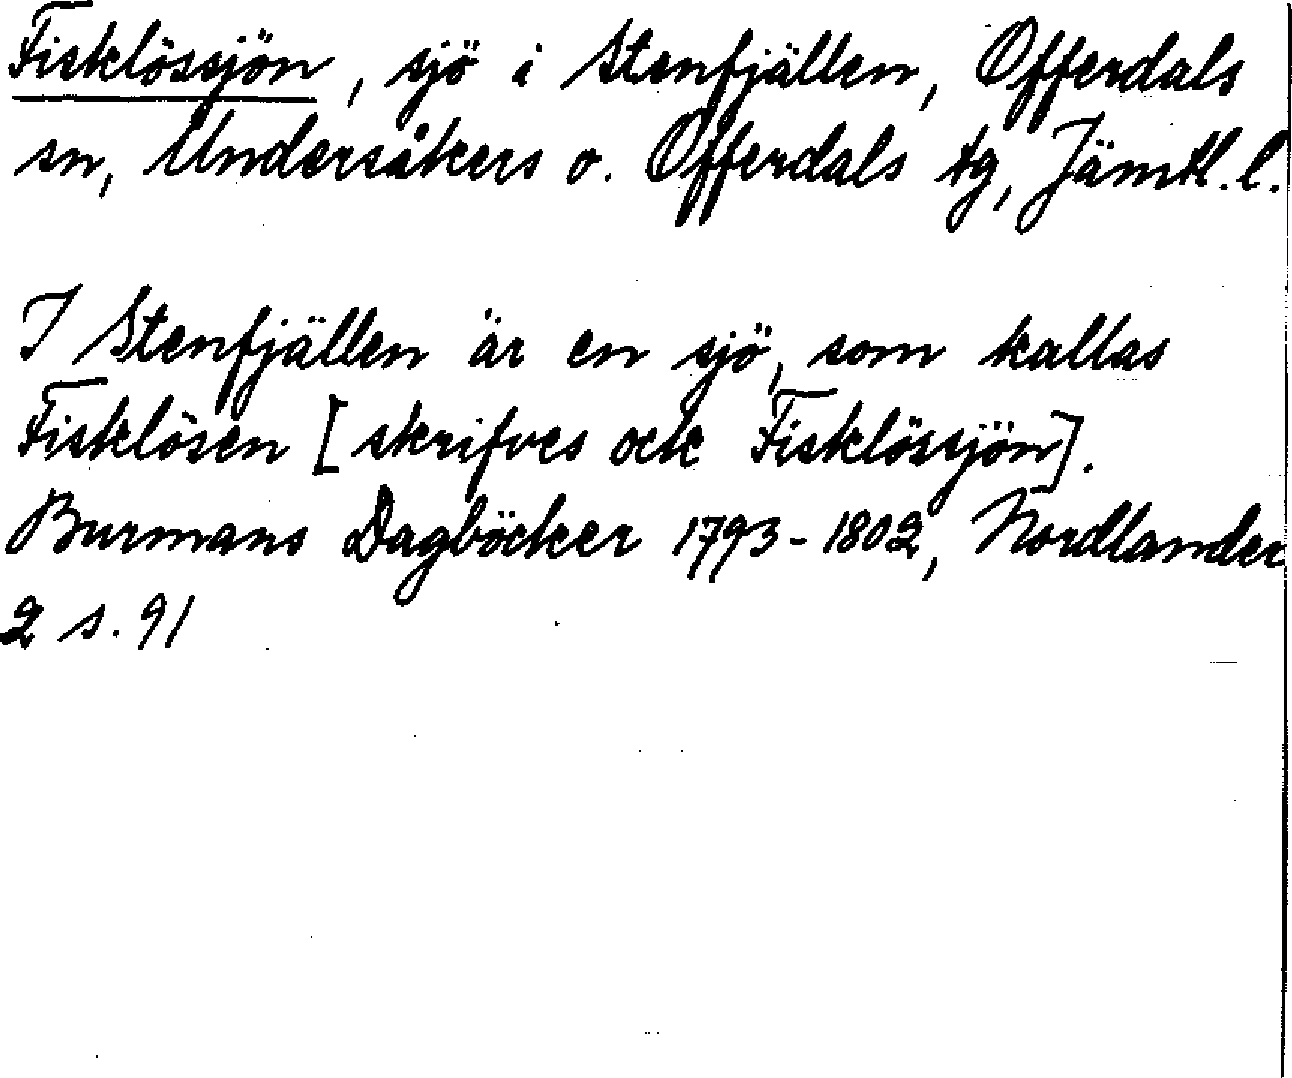 Fisklössjön, sjö i Stenfjällen, Offerdals
sn, Undersåkers o. Offerdals tg, Jämtl. l.
I Stenfjällen är en sjö, som kallas
Fisklösen [skrifves ock Fisklössjön].
Burmans Dagböcker 1793-1802, Nordlander
2 s. 91